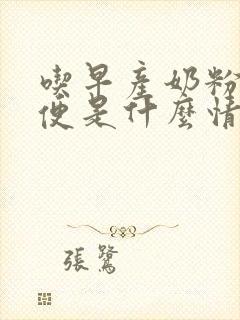 喫早產奶粉
便是什麼情
張鷺